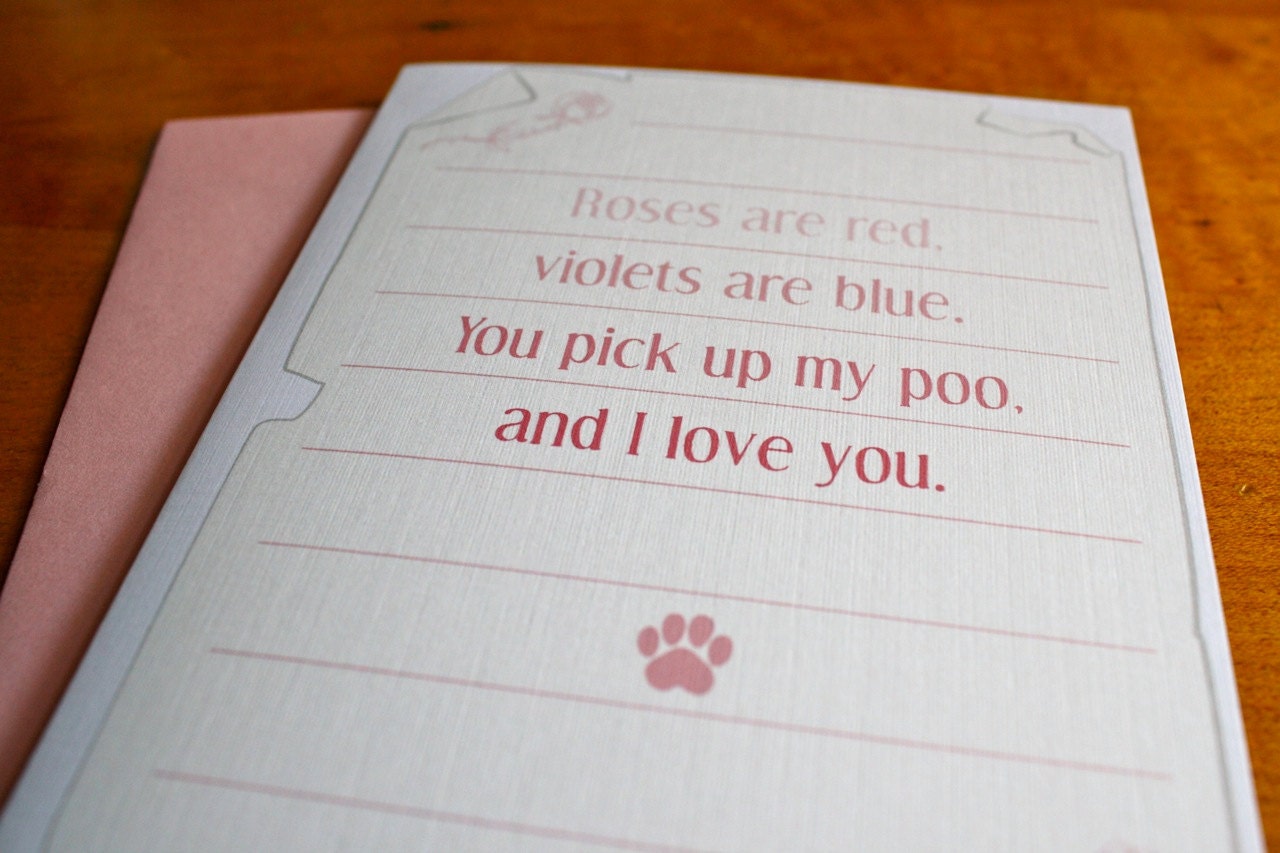 Roses are red.
violets are blue.
You pick up my poo,
and I love you.